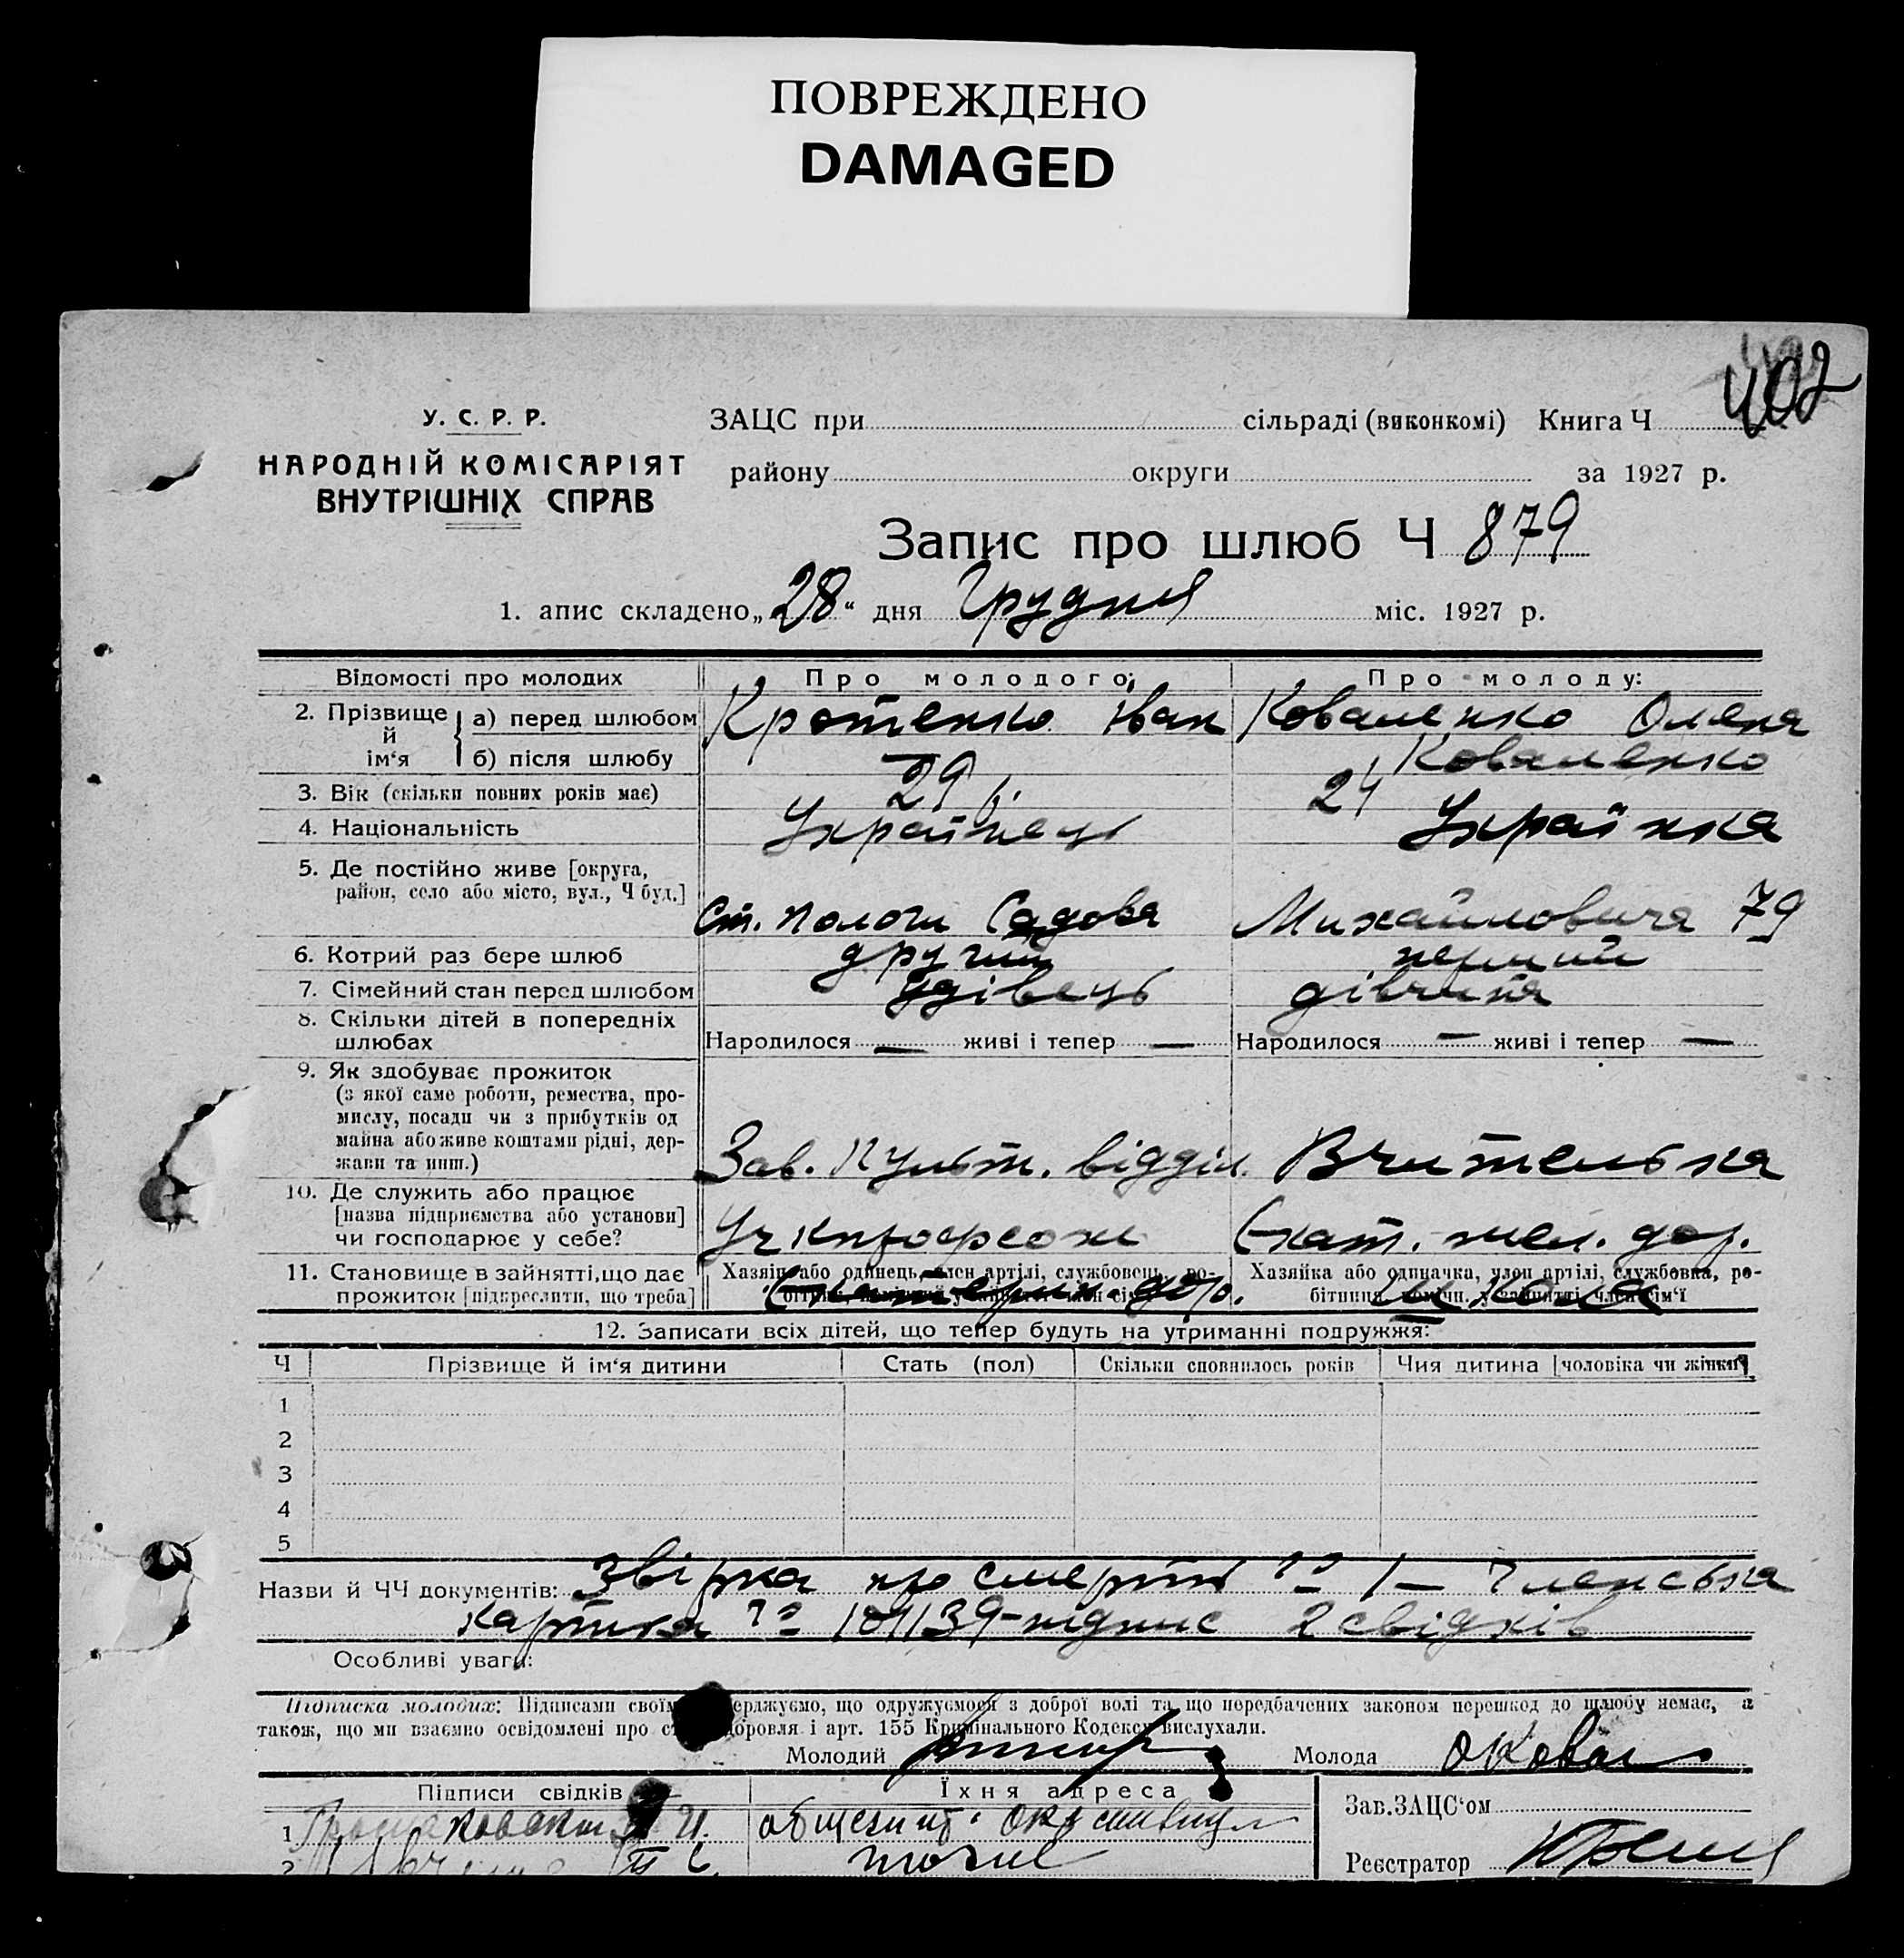 ПОВРЕЖДЕНО
DAMAGED
402
У. С. Р. Р.
НАРОДНІЙ КОМІСАРІЯТ
ВНУТРІШНІХ СПРАВ
ЗАЦС при сільраді (виконкомі) Книга Ч
району округи за 1927 р.
Запис про шлюб Ч 879
1. апис складено „28“ дня Грудня міс. 1927 р.
Відомості про молодих Про молодого: Про молоду:
2. Прізвище й ім‘я а) перед шлюбом Кротенко Іван Коваленко Олена
б) після шлюбу Коваленко
3. Вік (скільки повних років має) 29 р. 24
4. Національність Українець Українка
5. Де постійно живе [округа,
район, село або місто, вул., Ч буд.] Ст. Пологи Садова Михайловича 79
6. Котрий раз бере шлюб другий перший
7. Сімейний стан перед шлюбом удівець дівчина
8. Скільки дітей в попередніх
шлюбах Народилося — живі і тепер — Народилося — живі і тепер —
9. Як здобуває прожиток
(з якої саме роботи, ремества, про-
мислу, посади чи з прибутків од
майна або живе коштами рідні, дер-
жави та инш.) Зав. Культ. відділ. Вчителька
10. Де служить або працює
[назва підприємства або установи]
чи господарює у себе? Екат. жел. дор.
11. Становище в зайнятті, що дає
прожиток [підкреслити, що треба]
Хазяїн або одинець, член артілі, службовець, ро-
Екатерин. дор.
Хазяйка або одиначка, член артілі, службовка, ро-
бітниця, помічн. у зайнятті член сім‘ї
школа
12. Записати всіх дітей, що тепер будуть на утриманні подружжя:
Ч Прізвище й ім‘я дитини Стать (пол) Скільки сповнилось років Чия дитина [чоловіка чи жінки]
1
2
3
4
5
Назви й ЧЧ документів: про смерть № 1 — Членська
картка № 101139 — підпис 2 свідків
Особливі уваги:
Підписка молодих: Підписами своїм ерджуємо, що одружуємося з доброї волі та що передбачених законом перешкод до шлюбу немає, а
також, що ми взаємно освідомлені про ст доровля і арт. 155 Кримінального Кодексу вислухали.
Молодий Молода ОКовал
Підписи свідків Їхня адреса
1
2
Зав. ЗАЦС‘ом
Реєстратор